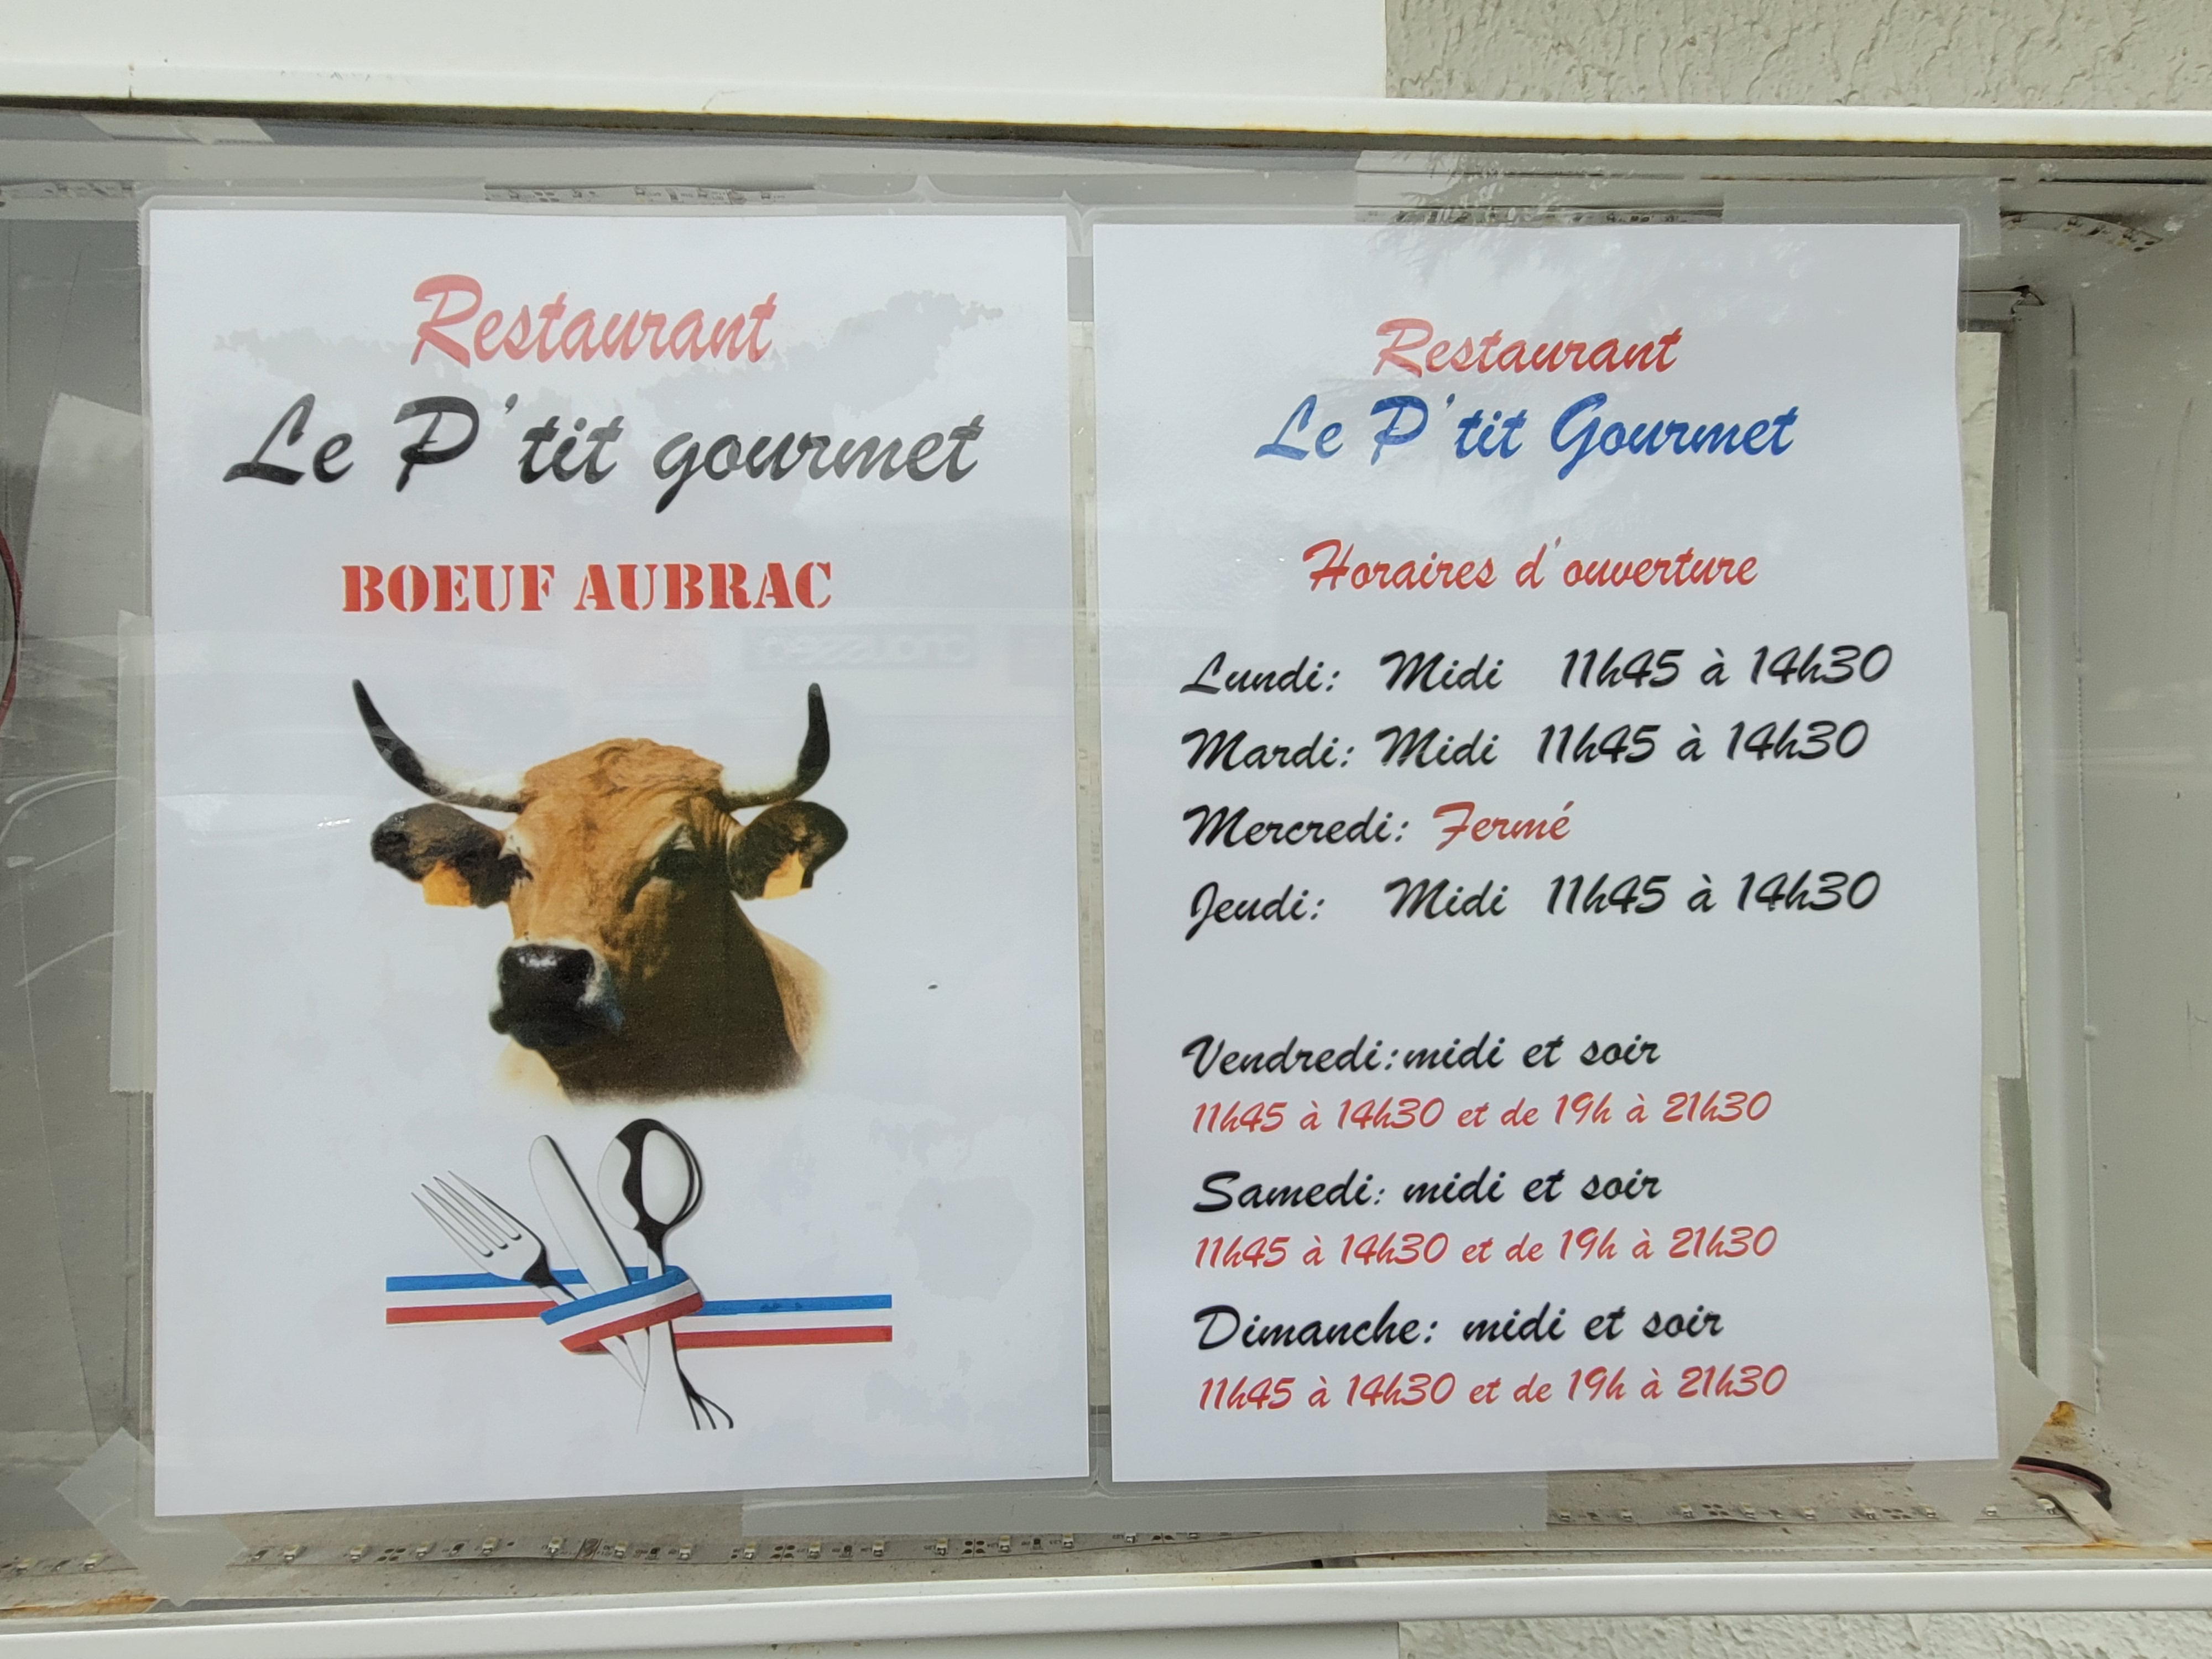 Restaurant
Le P'tit gourmet
BOEUF AUBRAC
Restaurant
Le P'tit Gourmet
Horaires d'ouverture
Lundi: Midi 11h45 à 14h30
Mardi: Midi 11h45 à 14h30
Mercredi: Fermé
Jeudi: Midi 11h45 à 14h30
Vendredi:midi et soir
11h45 à 14h30 et de 19h à 21h30
Samedi: midi et soir
11h45 à 14h30 et de 19h à 21h30
Dimanche: midi et soir
11h45 à 14h30 et de 19h à 21h30